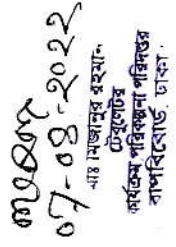 ০৭-০৪-২০২২
মোঃ মিজানুর রহমান
টেবুলেটর
কার্যক্রম পরিকল্পনা পরিদপ্তর
বাপবিবোর্ড, ঢাকা।